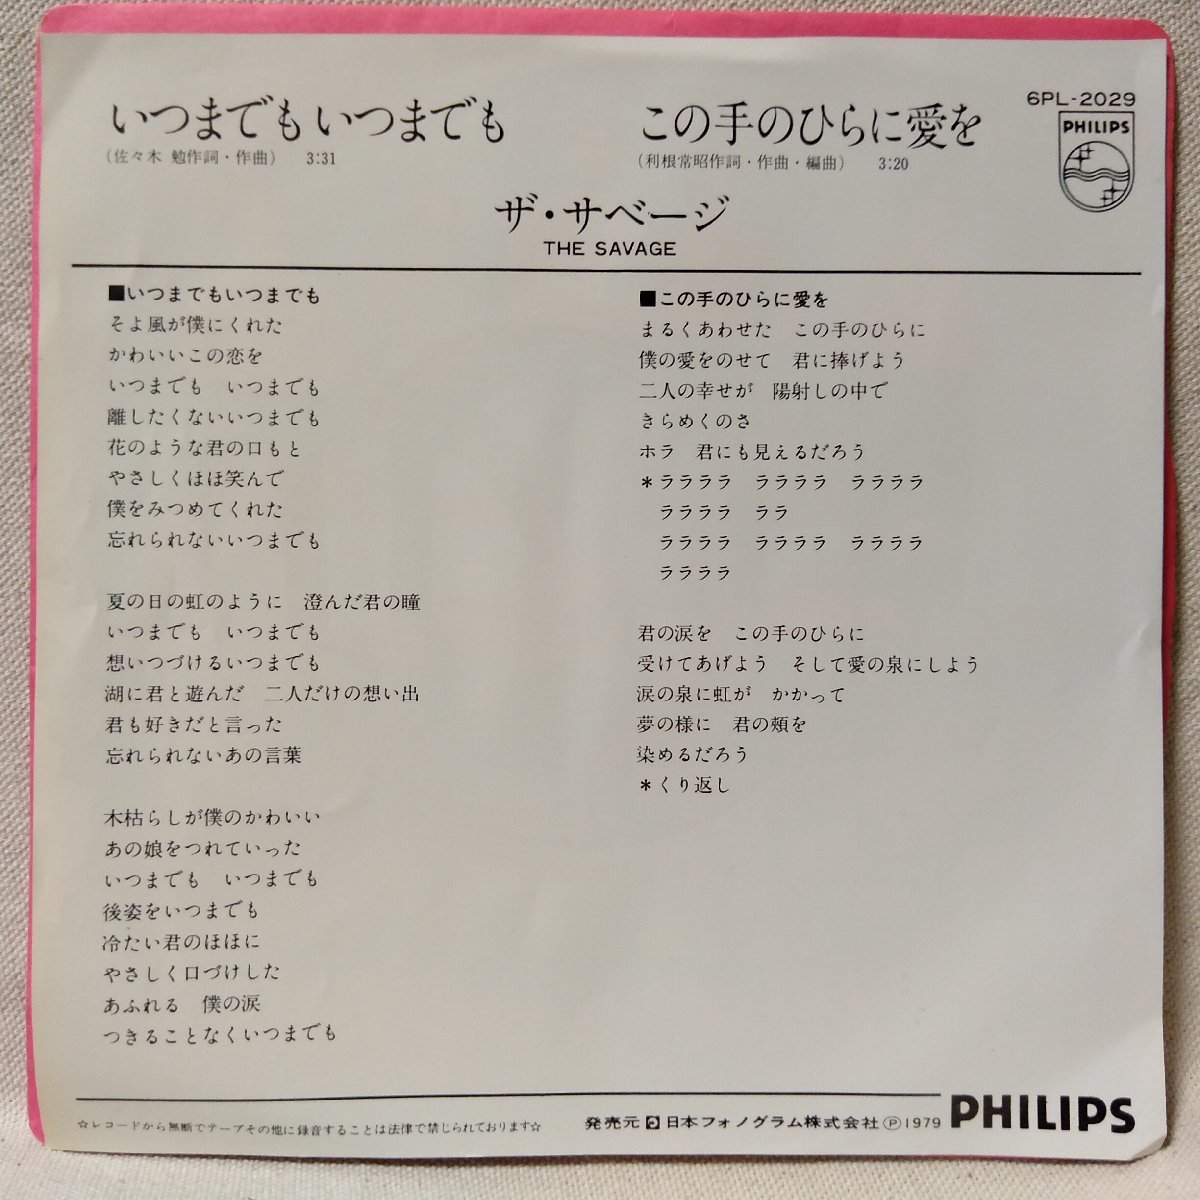 いつまでも いつまでも
(佐々木 勉作詞・作曲) 3:31
この手のひらに愛を
(利根常昭作詞・作曲・編曲) 3:20
6PL-2029
PHILIPS
ザ・サベージ
THE SAVAGE
■いつまでもいつまでも
そよ風が僕にくれた
かわいいこの恋を
いつまでも いつまでも
離したくないいつまでも
花のような君の口もと
やさしくほほ笑んで
僕をみつめてくれた
忘れられないいつまでも
夏の日の虹のように 澄んだ君の瞳
いつまでも いつまでも
想いつづけるいつまでも
湖に君と遊んだ 二人だけの想い出
君も好きだと言った
忘れられないあの言葉
木枯らしが僕のかわいい
あの娘をつれていった
いつまでも いつまでも
後姿をいつまでも
冷たい君のほほに
やさしく口づけした
あふれる 僕の涙
つきることなくいつまでも
■この手のひらに愛を
まるくあわせた この手のひらに
僕の愛をのせて 君に捧げよう
二人の幸せが 陽射しの中で
きらめくのさ
ホラ 君にも見えるだろう
*ララララ ララララ ララララ
ララララ ララ
ララララ ララララ ララララ
ララララ
君の涙を この手のひらに
受けてあげよう そして愛の泉にしよう
涙の泉に虹が かかって
夢の様に 君の頰を
染めるだろう
*くり返し
☆レコードから無断でテープその他に録音することは法律で禁じられております☆
発売元 日本フォノグラム株式会社 Ⓟ1979 PHILIPS